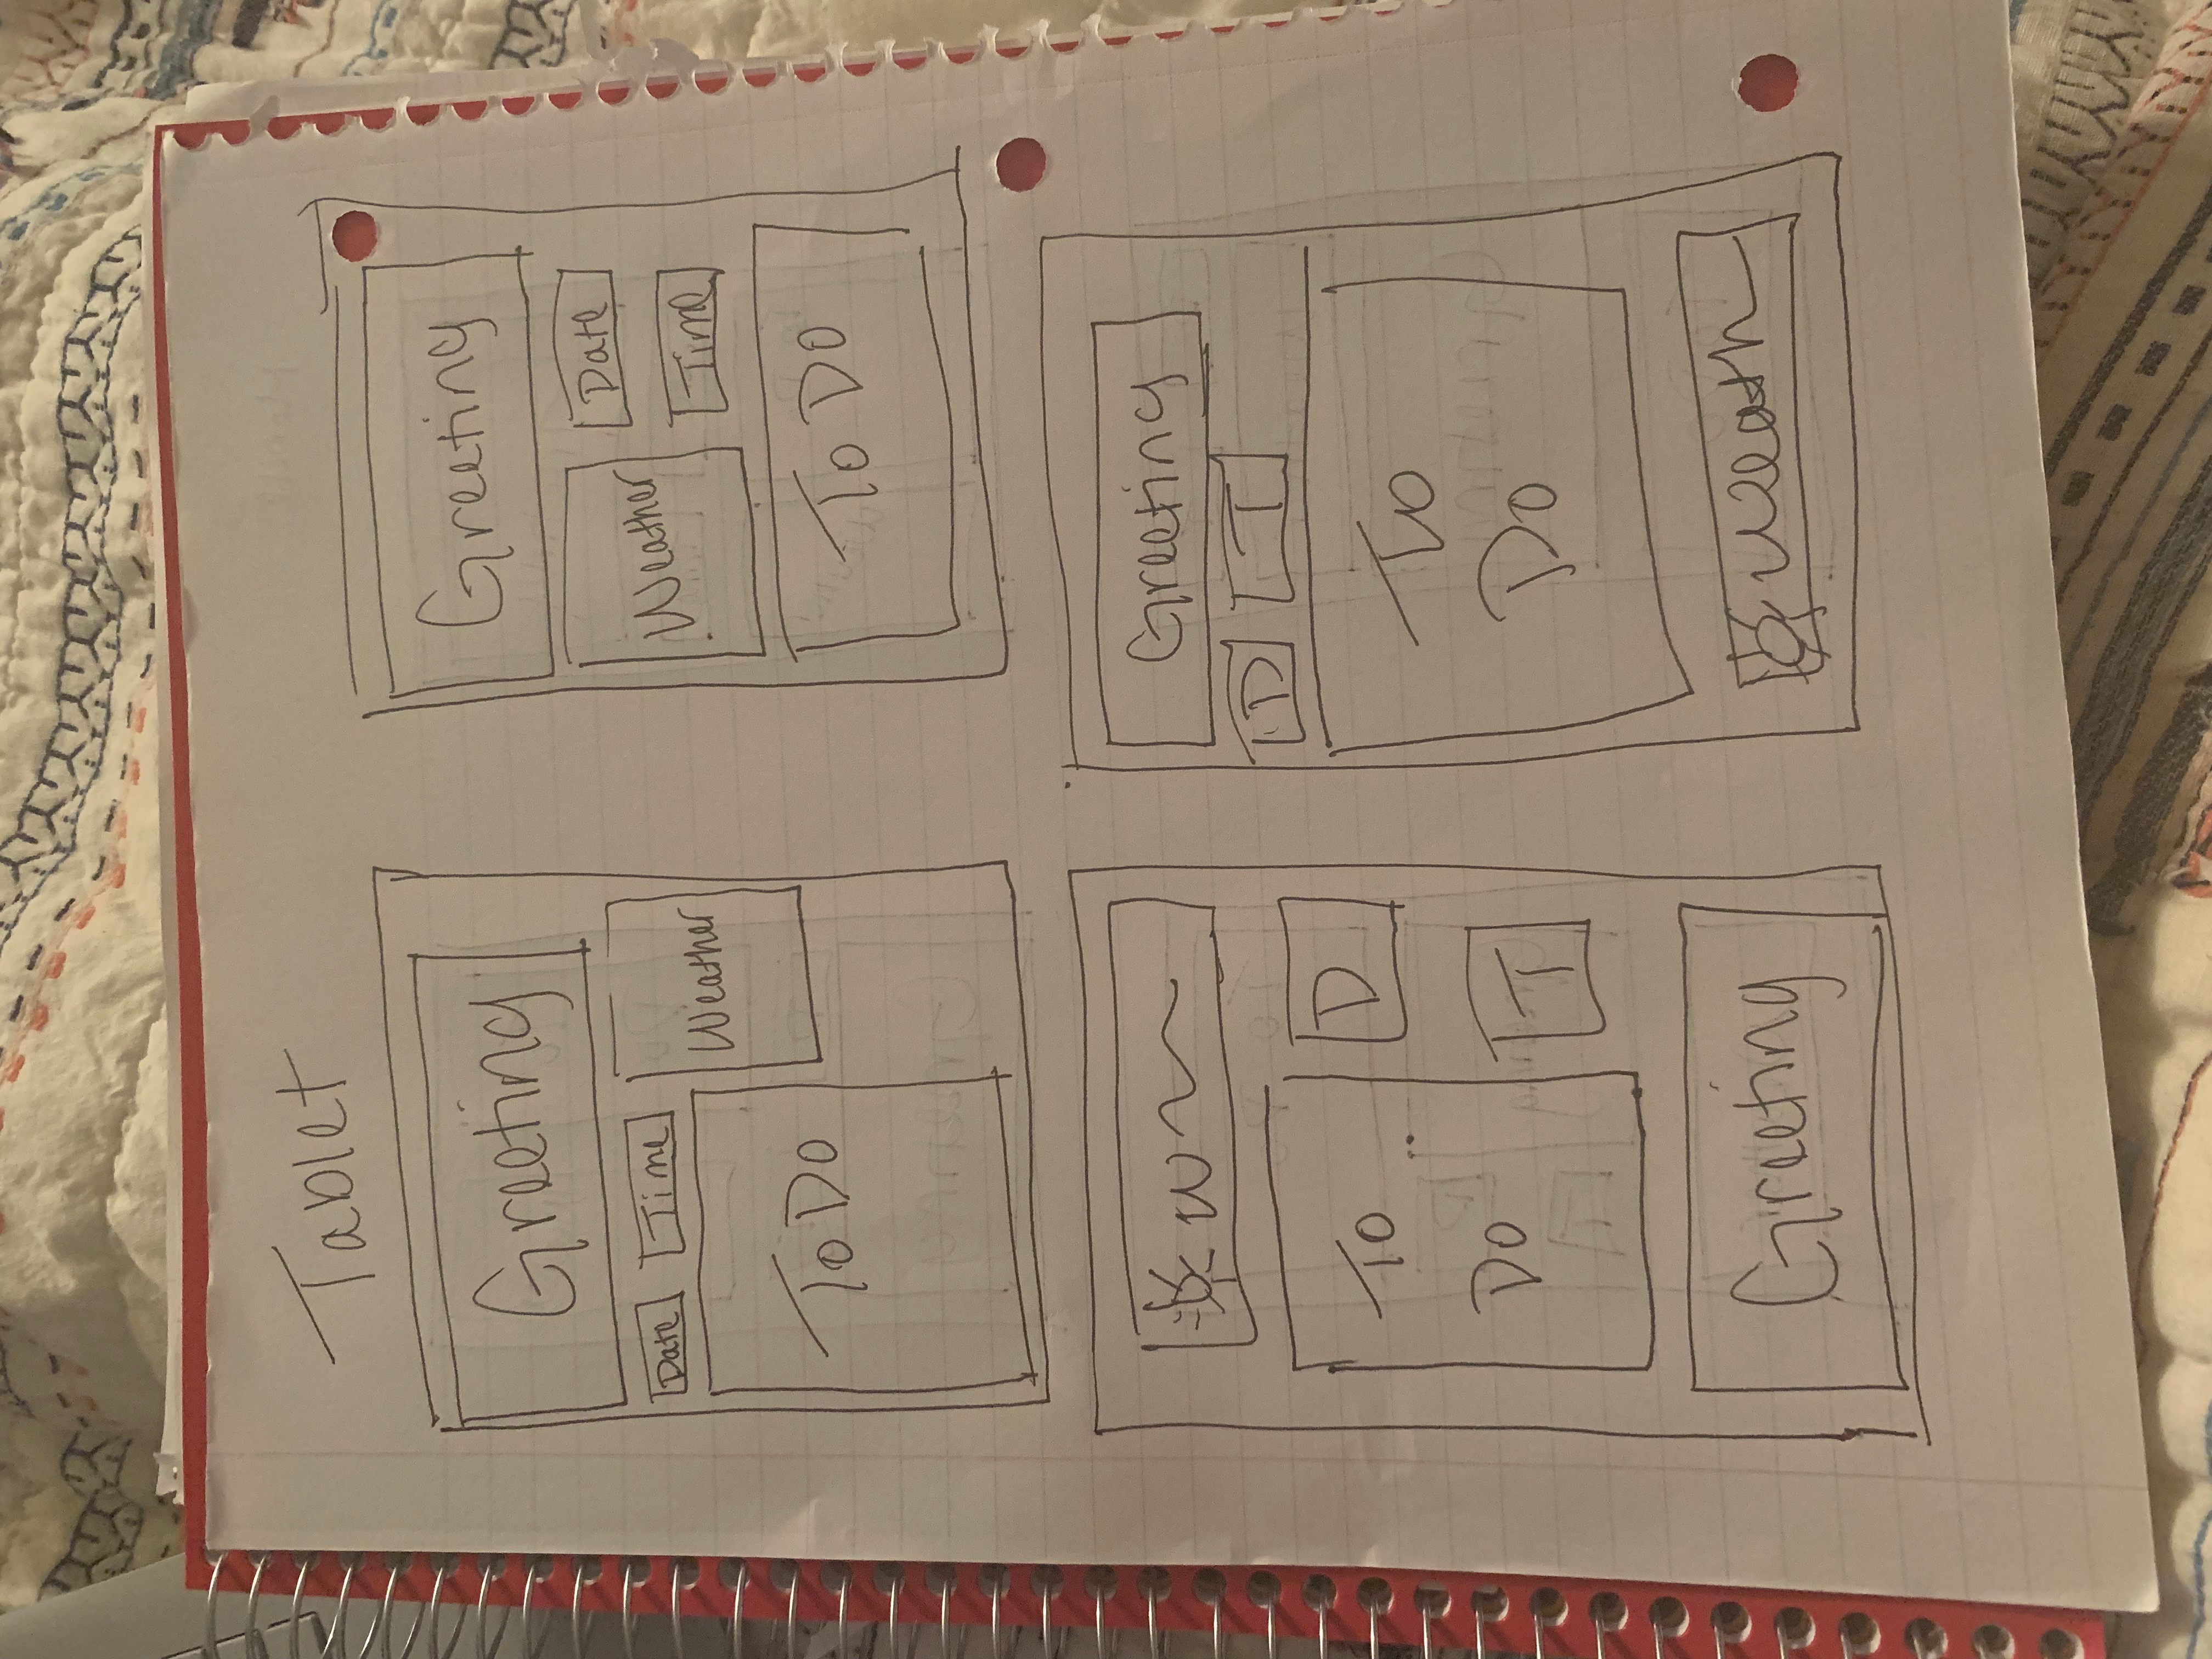 Tablet
Greeting
Date Time
Weather
To Do
Greeting
Weather
Date
Time
To Do
W
To
Do
D
T
Greeting
Greeting
D T
To
Do
Weath